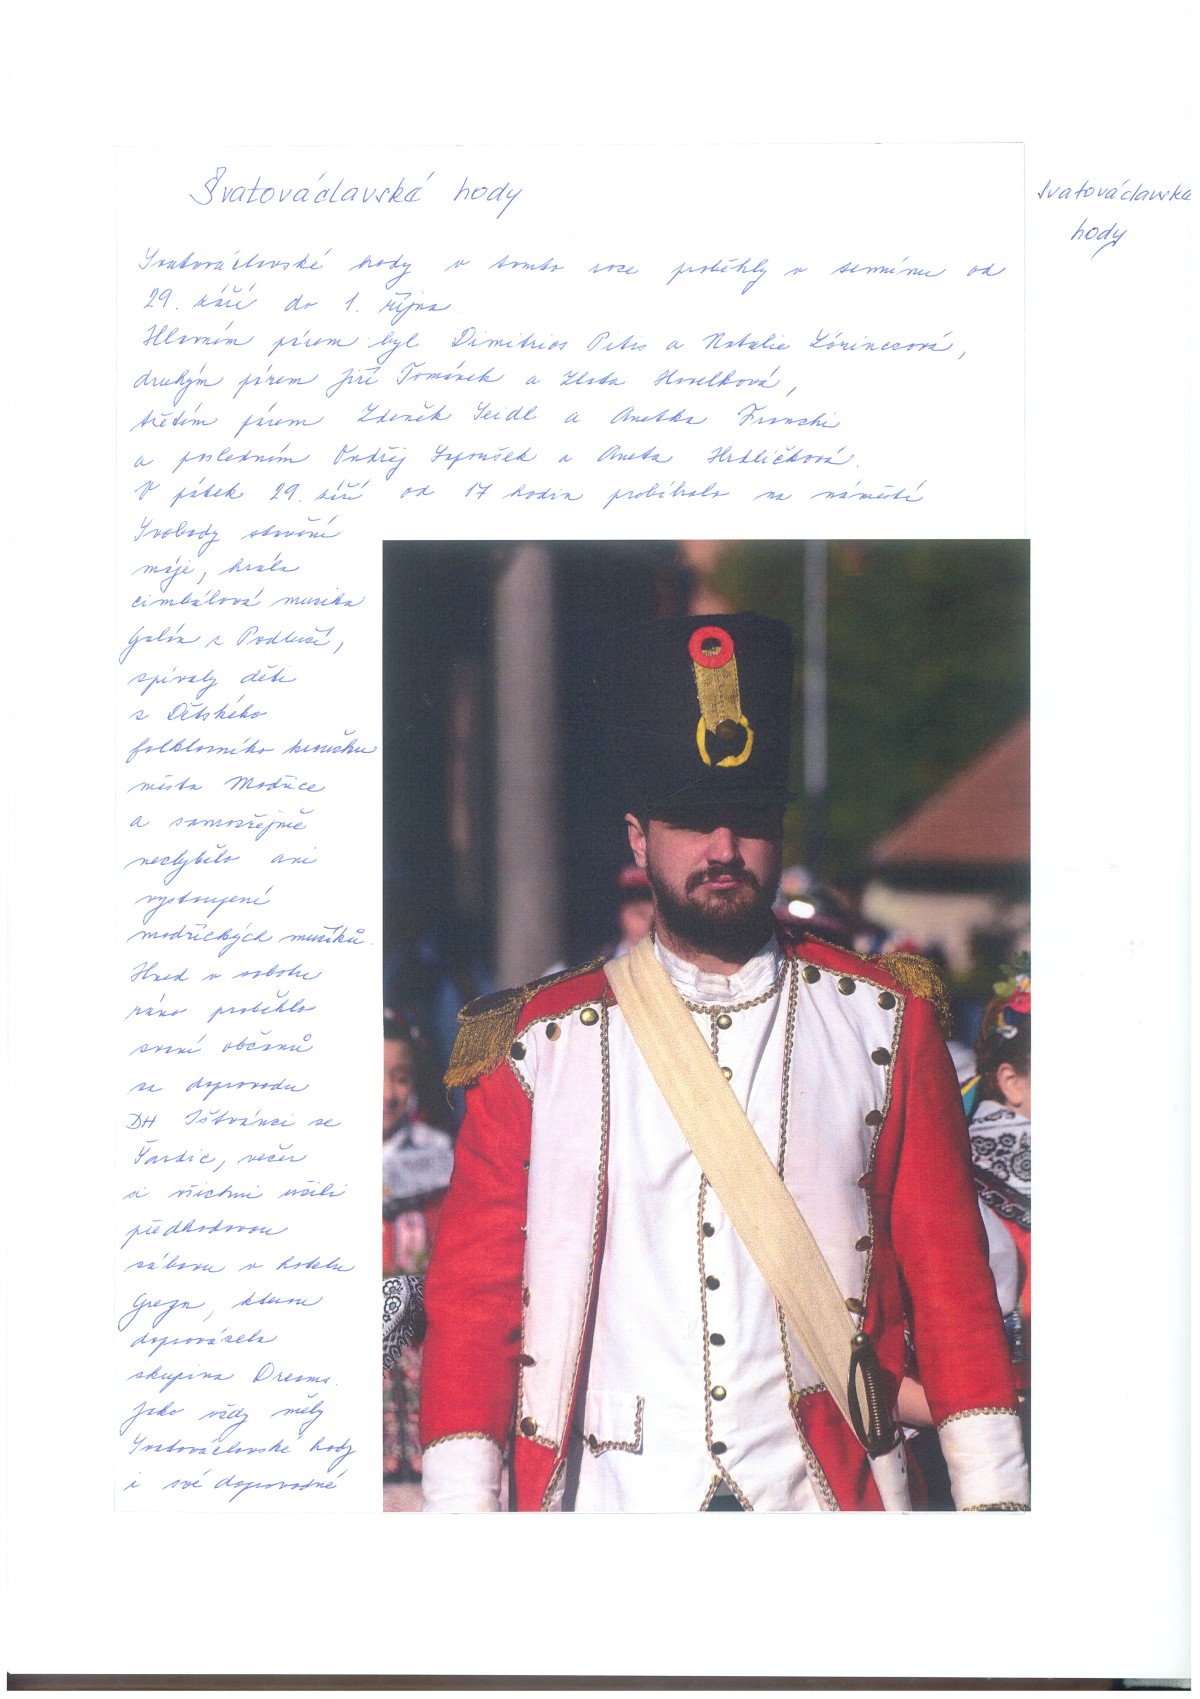 Svatováclavské hody
Svatováclavské
hody
Svatováclavské hody v tomto roce proběhly v termínu od
29. září do 1. října.
Hlavním párem byl Dimitrios Pitis a Natalie Lőrinczová,
druhým párem Jiří Tománek a Zlata Havelková,
třetím párem Zdeněk Seidl a Anetka Franchi
a posledním Ondřej Lapoušek a Aneta Hrdličková.
V pátek 29. září od 17 hodin probíhalo na náměstí
Svobody stavění
máje, hrála
cimbálová muzika
Galán z Podluží,
zpívaly děti
z Dětského
folklorního kroužku
města Modřice
a samozřejmě
nechybělo ani
vystoupení
modřických mužáků.
Hned v sobotu
ráno proběhlo
zvaní občanů
za doprovodu
DH Ištvánci se
Šardic, večer
si všichni užili
předhodovou
zábavu v hotelu
Gregor, kterou
doprovázela
skupina Dreams.
Jako vždy měly
Svatováclavské hody
i své doprovodné